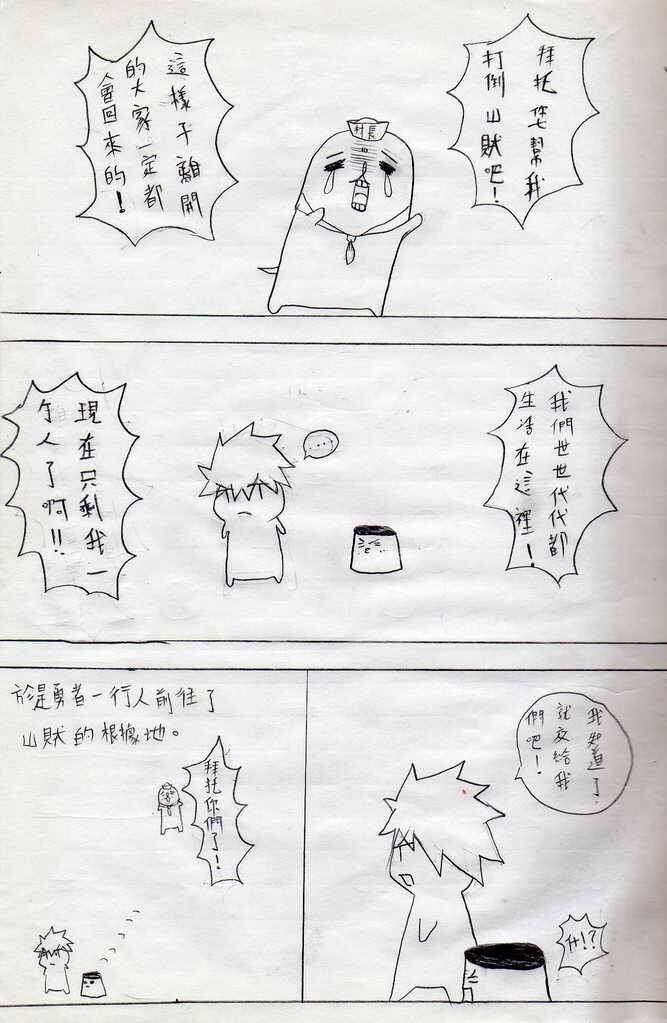 拜托您幫我
打倒山賊吧！
村長
這樣子離開
的大家一定都
會回來的！
我們世世代代都
生活在這裡！
…
現在只剩我一
个人了啊!!
我知道了
就交給我
們吧！
什!?
於是勇者一行人前往了
山賊的根據地。
拜托你們了！